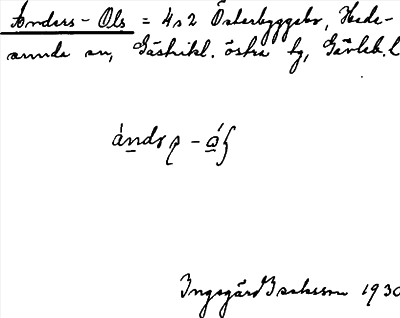 Anders-Ols = 4:2 Österbyggebo, Hede-
sunda sn, Gästrikl. östra tg, Gävleb. l
Ingegärd Isaksson 1930